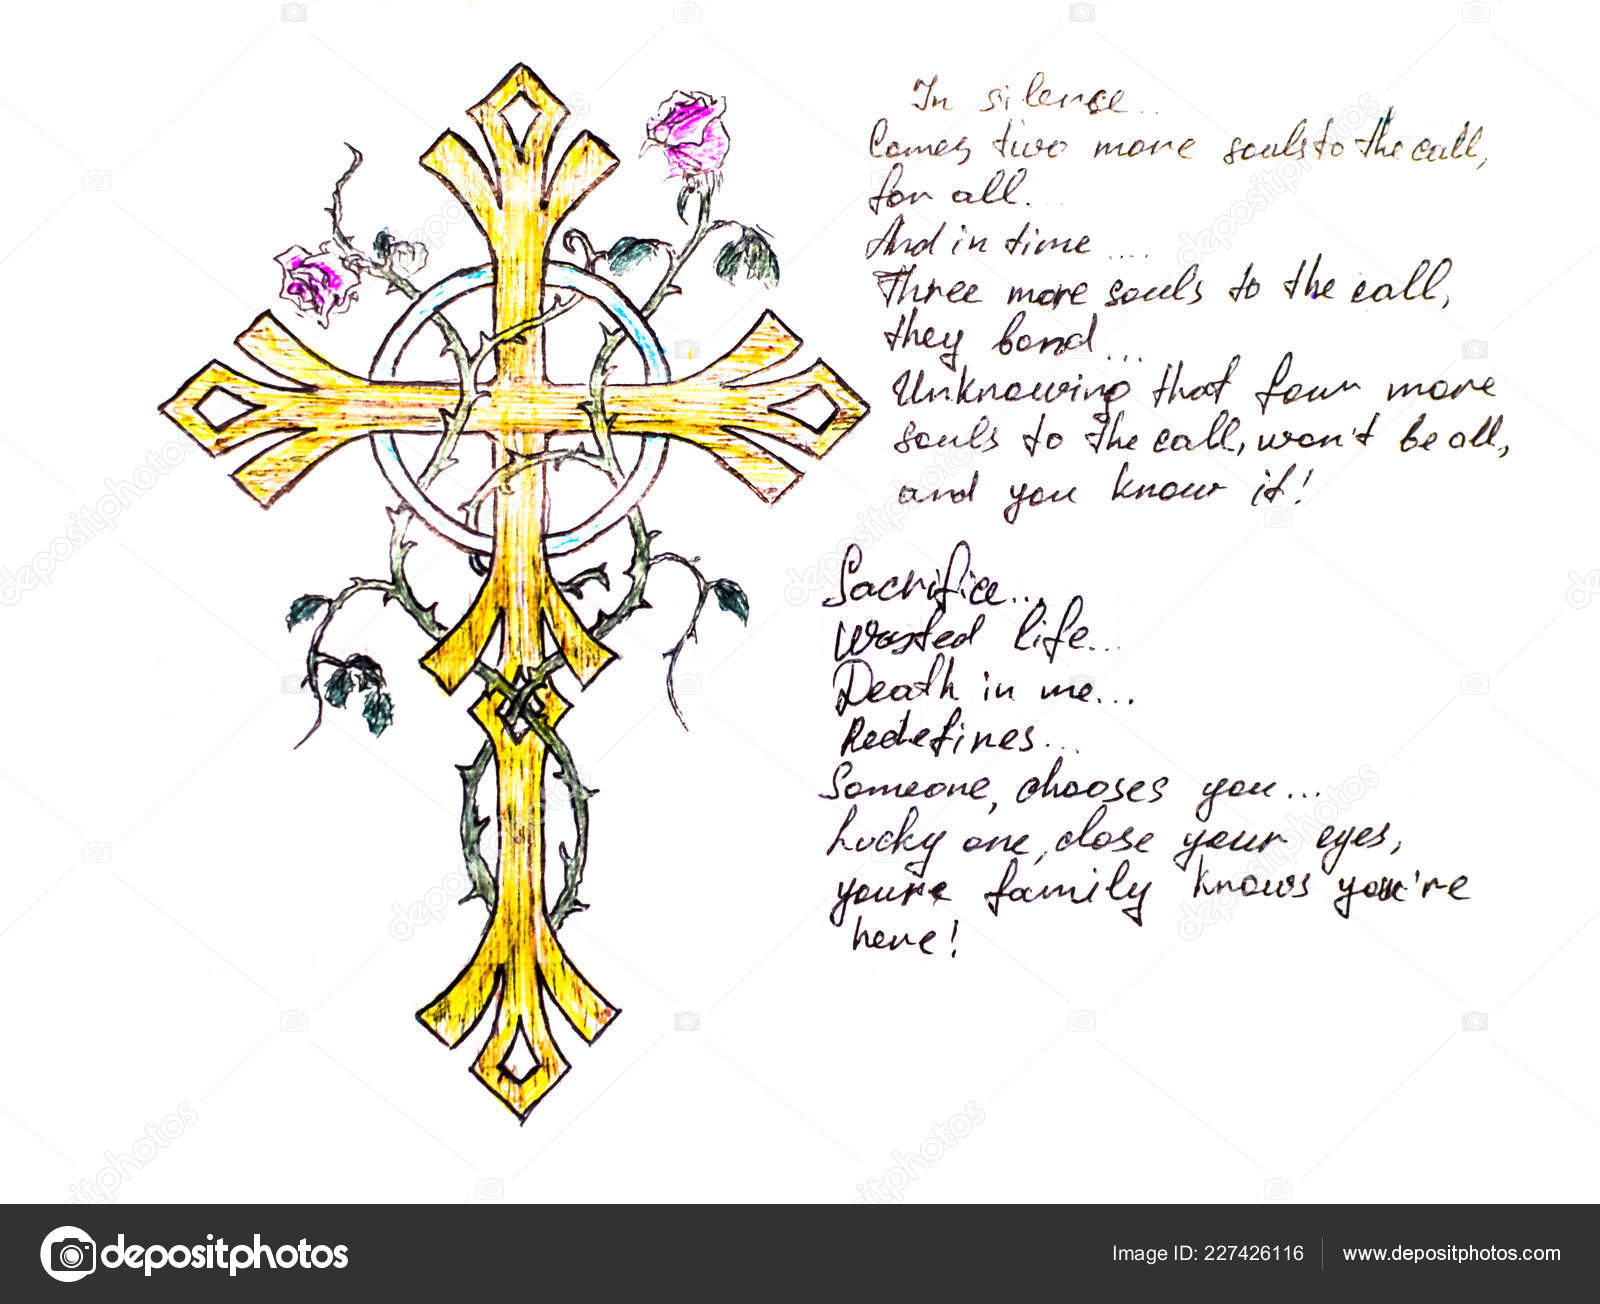 In silence..
Comes two more souls to the call,
for all...
And in time ....
Three more souls to the call,
they bond...
Unknowing that four more
souls to the call, won't be all,
and you know it!
Sacrifice...
Wasted life...
Death in me...
Redefines...
Someone, chooses you...
Lucky one, close your eyes,
youre family knows you're
here!
depositphotos
Image ID: 227426116
www.depositphotos.com